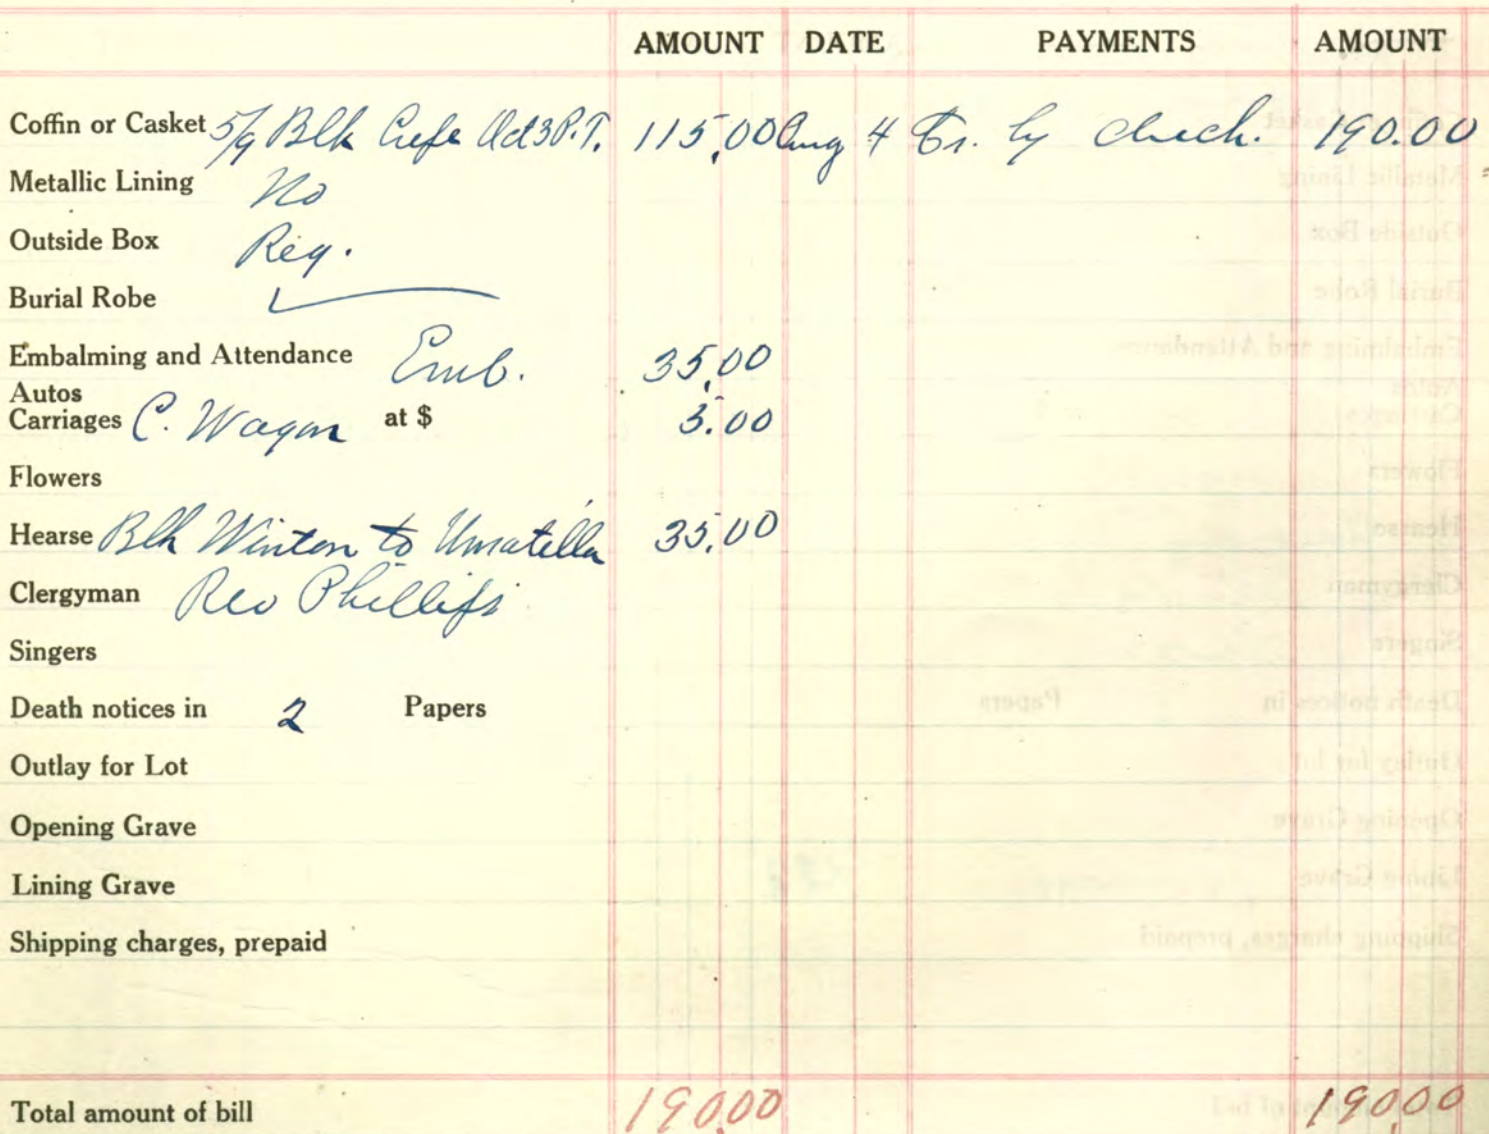 AMOUNT DATE PAYMENTS AMOUNT
Coffin or Casket 5/9 Blk Crepe Oct 3P.T. 115.00 Aug 4 Cr. by check. 190.00
Metallic Lining No
Outside Box Reg.
Burial Robe ✓
Embalming and Attendance Emb. 35.00
Autos
Carriages C. Wagon at $ 5.00
Flowers
Hearse Blk Winton to Umatilla 35.00
Clergyman Rev Phillips
Singers
Death notices in 2 Papers
Outlay for Lot
Opening Grave
Lining Grave
Shipping charges, prepaid
Total amount of bill 190.00 190.00